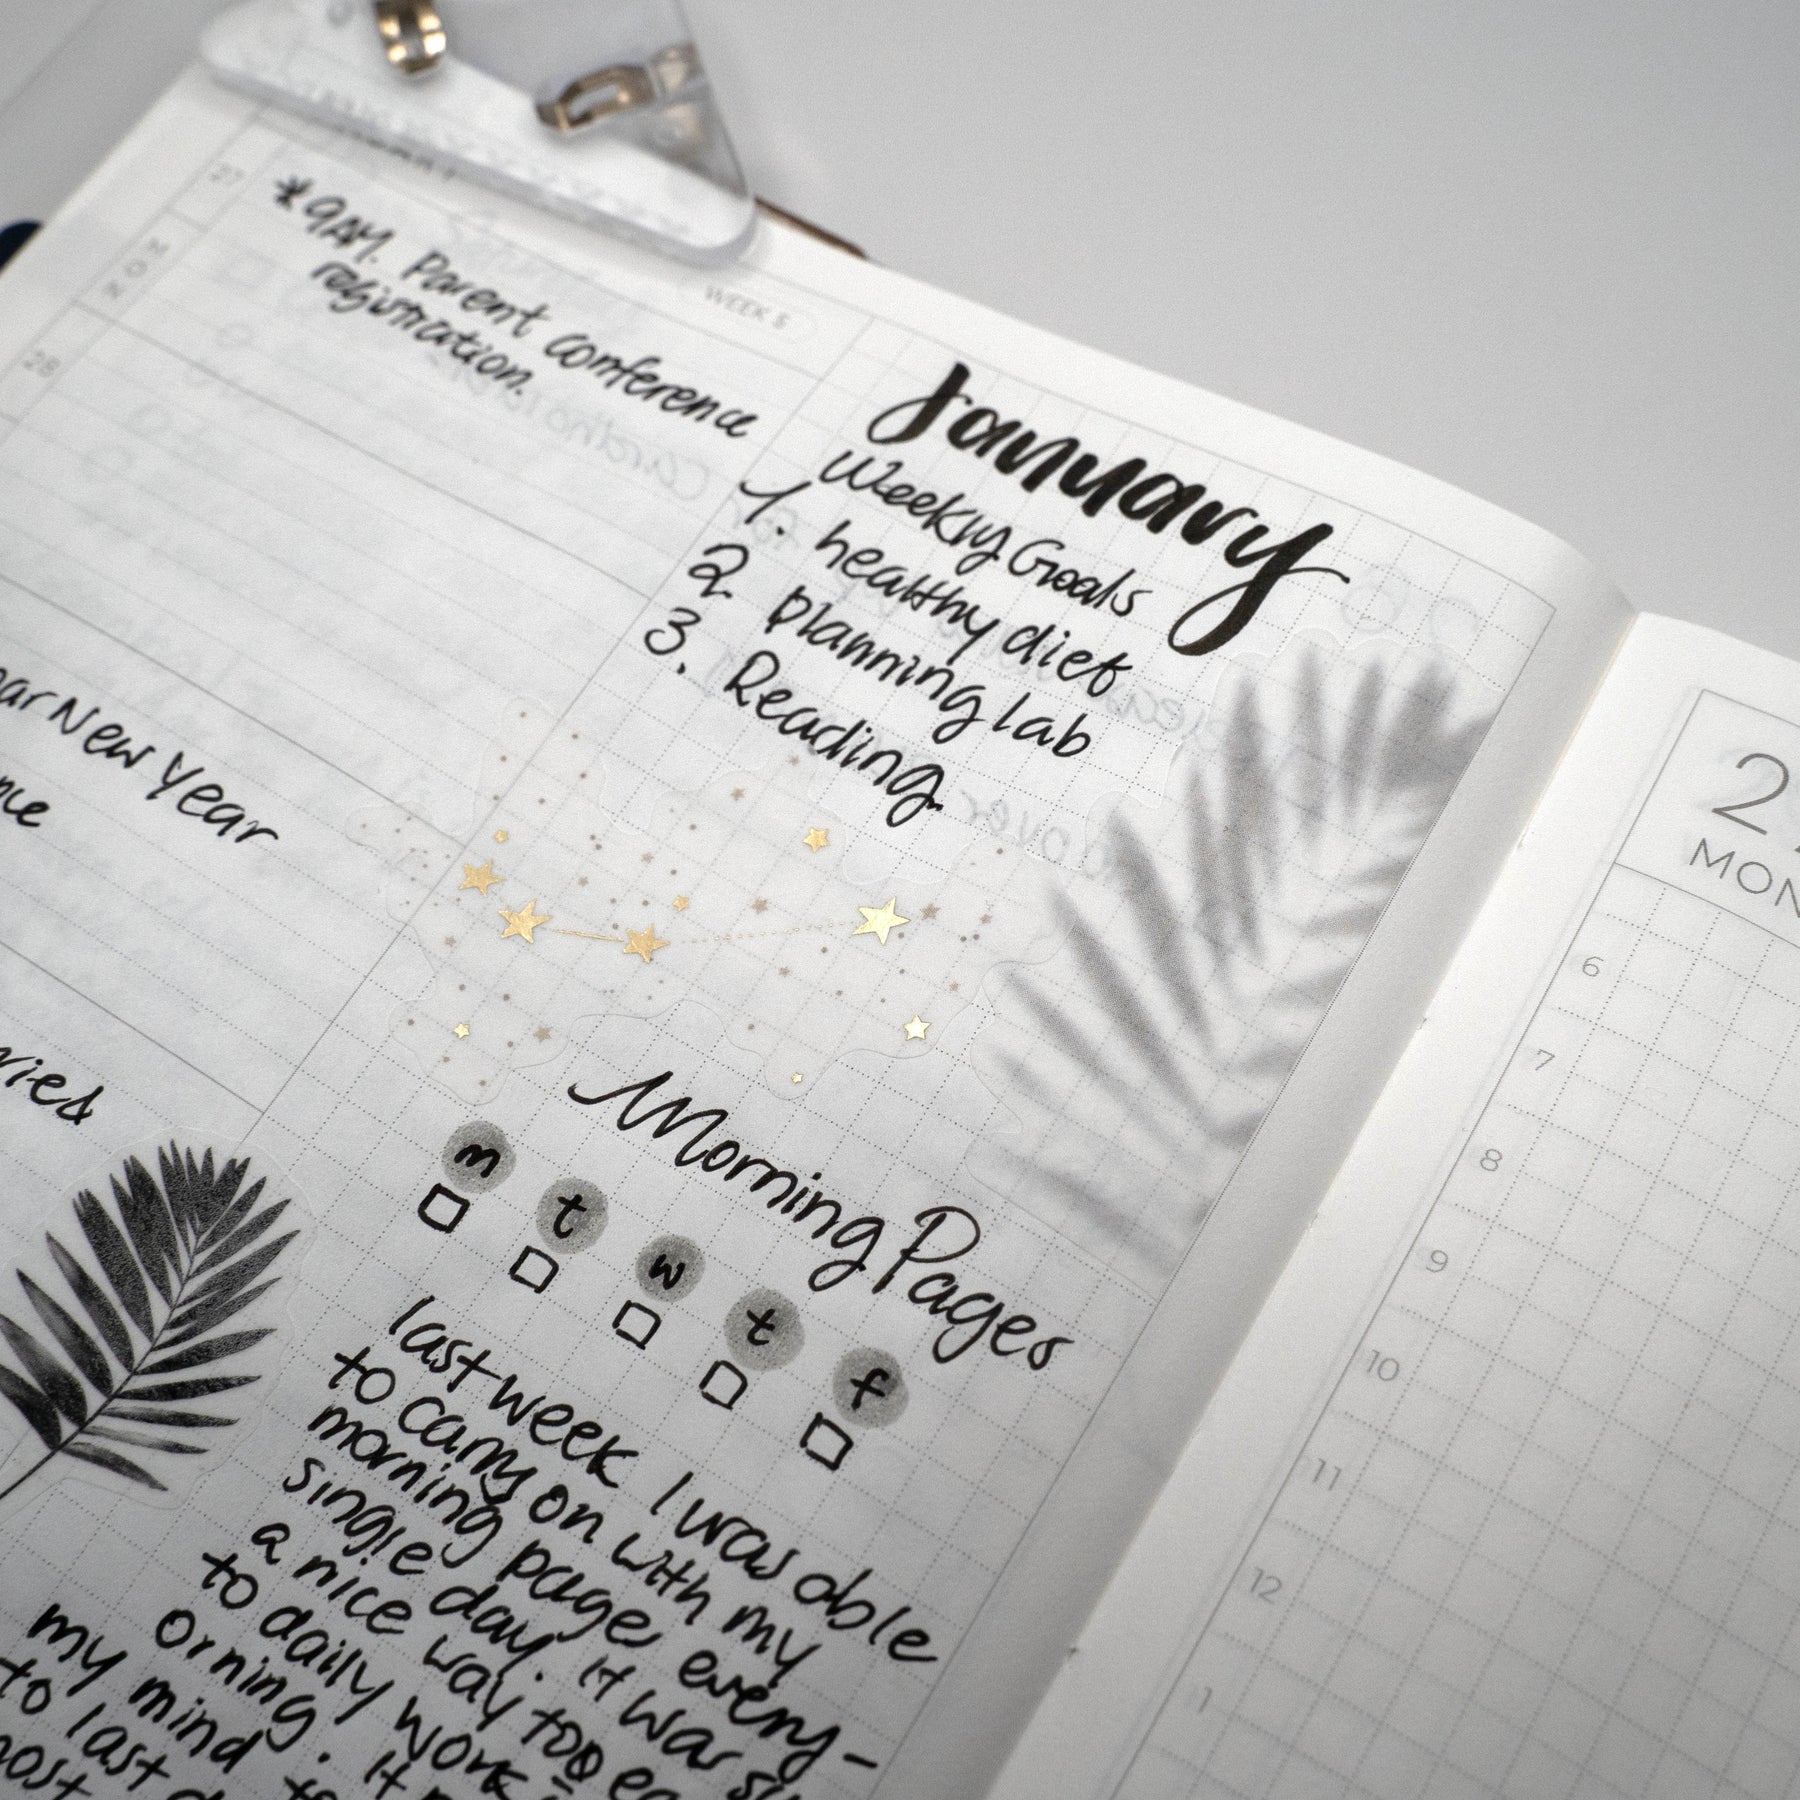 WEEK 5
27
MON
* 9AM. Parent conference
registration.
28
New Year
January
Weekly Goals
1. healthy diet
2. planning lab
3. Reading
Morning Pages
m t w t f
last week I was able
to carry on with my
morning pages every-
single day. It was
a nice way too
to daily work
orning. It
my mind
to last
MON
6
7
8
9
10
11
12
1